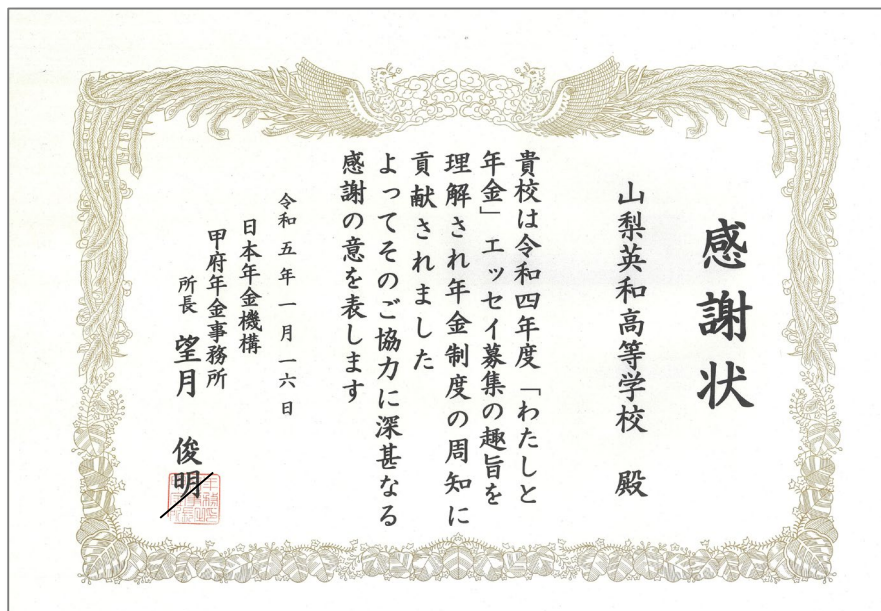 感謝状
山梨英和高等学校 殿
貴校は令和四年度「わたしと
年金」エッセイ募集の趣旨を
理解され年金制度の周知に
貢献されました
よってそのご協力に深甚なる
感謝の意を表します
令和五年一月一六日
日本年金機構
甲府年金事務所
所長 望月 俊明